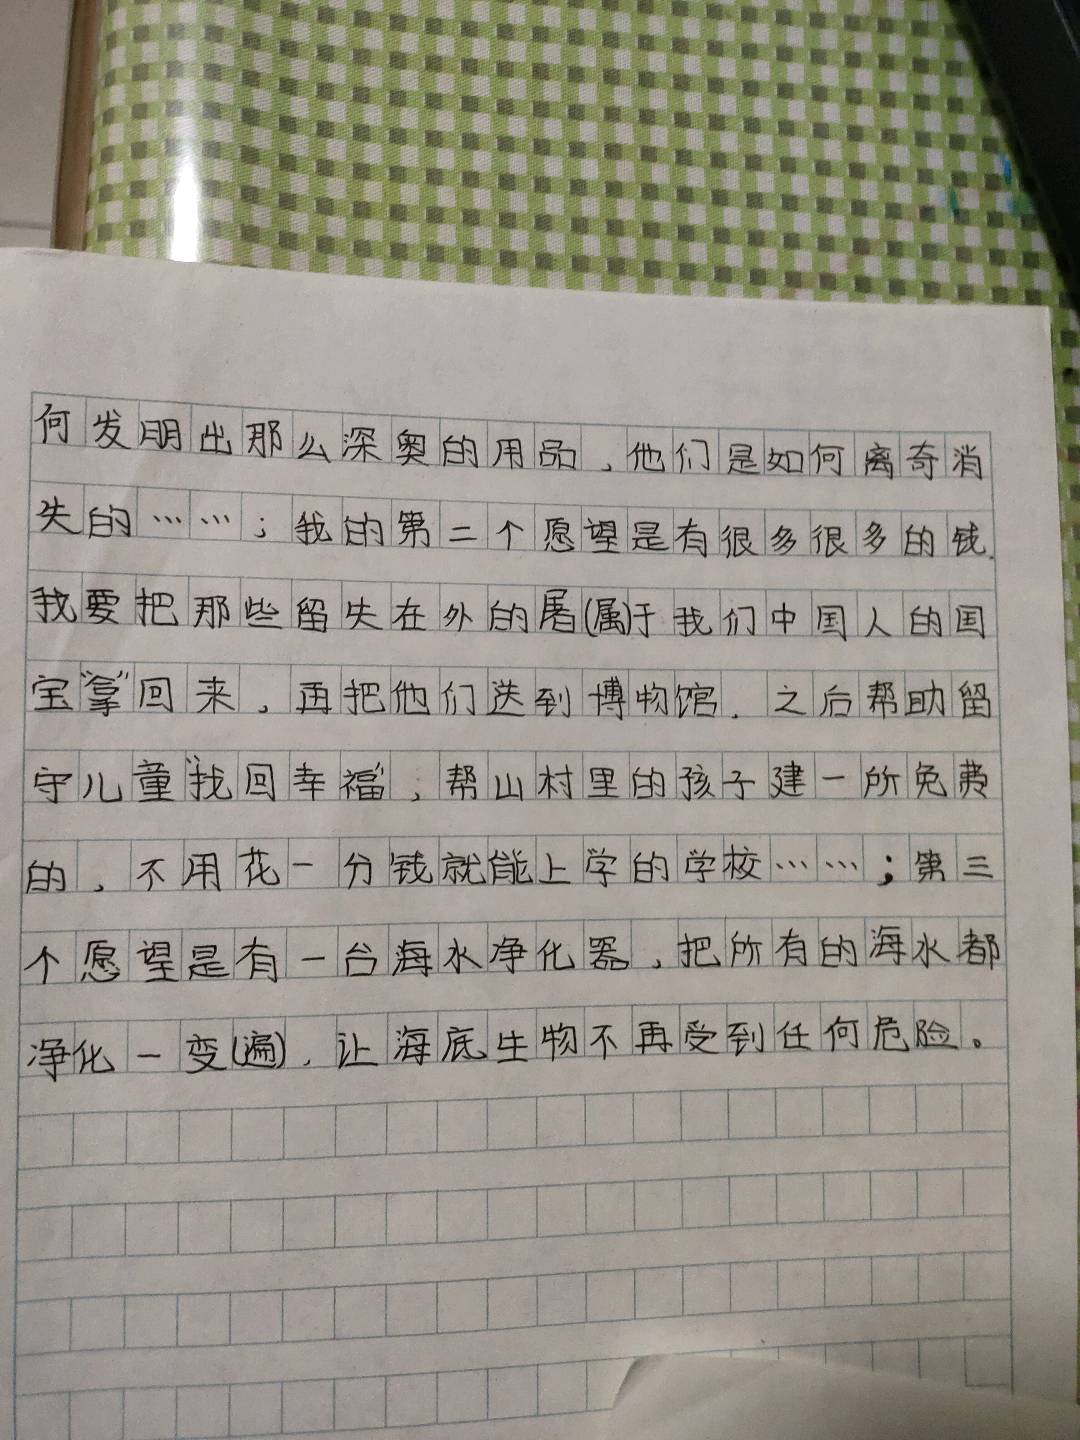 何发明出那么深奥的用品，他们是如何离奇消
失的……；我的第二个愿望是有很多很多的钱.
我要把那些留失在外的屠(属)于我们中国人的国
宝“拿”回来，再把他们送到博物馆.之后帮助留
守儿童“找回幸福”，帮山村里的孩子建一所免费
的，不用花一分钱就能上学的学校……；第三
个愿望是有一台海水净化器，把所有的海水都
净化一变(遍)，让海底生物不再受到任何危险。